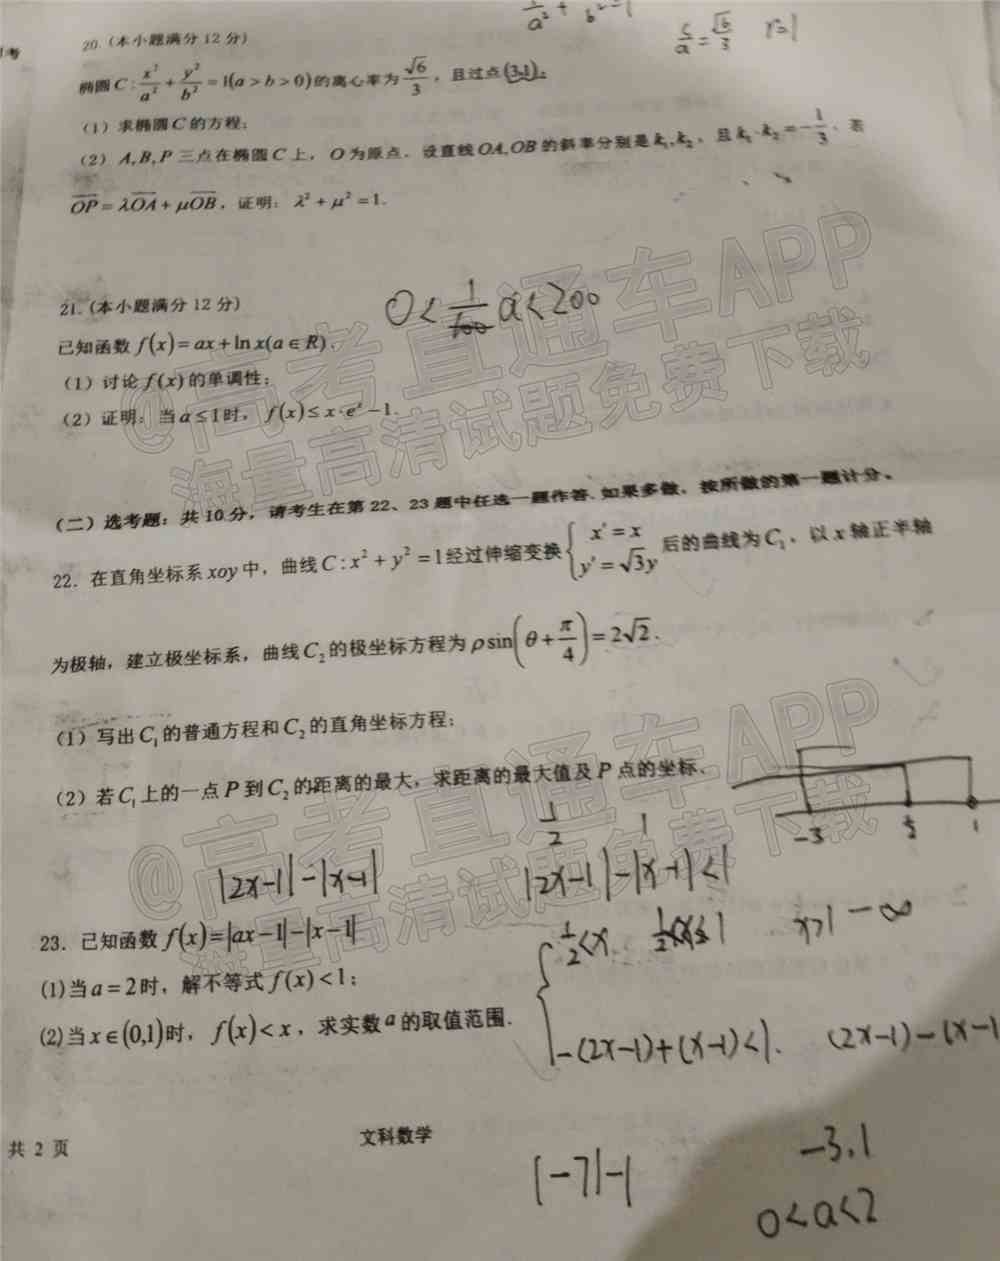 x²/a² + y²/b² = 1
c/a = √6/3
20.（本小题满分 12 分）
椭圆 C : x²/a² + y²/b² = 1(a > b > 0) 的离心率为 √6/3，且过点 (3,1)。
（1）求椭圆 C 的方程；
（2）A, B, P 三点在椭圆 C 上，O 为原点．设直线 OA, OB 的斜率分别是 k₁, k₂，且 k₁·k₂ = −1/3．若
OP = λOA + μOB，证明：λ² + μ² = 1.
21.（本小题满分 12 分）
0 < 1/100 a < 200
已知函数 f(x) = ax + ln x(a ∈ R)．
（1）讨论 f(x) 的单调性；
（2）证明：当 a ≤ 1 时，f(x) ≤ x·eˣ − 1.
（二）选考题：共 10 分，请考生在第 22、23 题中任选一题作答.如果多做，按所做的第一题计分。
22．在直角坐标系 xoy 中，曲线 C : x² + y² = 1 经过伸缩变换 { x' = x y' = √3y 后的曲线为 C₁，以 x 轴正半轴
为极轴，建立极坐标系，曲线 C₂ 的极坐标方程为 ρ sin(θ + π/4) = 2√2．
（1）写出 C₁ 的普通方程和 C₂ 的直角坐标方程；
（2）若 C₁ 上的一点 P 到 C₂ 的距离的最大，求距离的最大值及 P 点的坐标．
-3 1/2 1
1/2 1
|2x-1|-|x-1|
|2x-1|-|x-1|<1
23．已知函数 f(x) = |ax − 1| − |x − 1|
x>1 -∞
(1)当 a = 2 时，解不等式 f(x) < 1；
(2)当 x ∈ (0,1) 时，f(x) < x，求实数 a 的取值范围．
-(2x-1)+(x-1)<1. (2x-1)-(x-1
文科数学
共 2 页
|-7|-1
-3,1
0<a<2
@高考直通车APP
海量高清试题免费下载
@高考直通车APP
海量高清试题免费下载